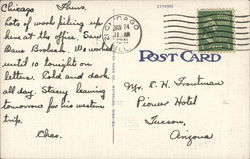 Chicago Thurs.
Lots of work piling up
here at the office. Saw
Dave Brobeck. We worked
until 10 tonight on
letters. Cold and dark
all day. Stacey leaving
tomorrow for his western
trip.
Chas.
CHICAGO
ILL.
POST CARD
Mr. E. H. Troutman
Pioneer Hotel
Tucson,
Arizona